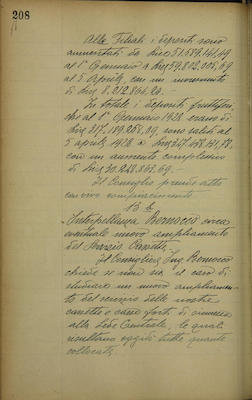 208
Alle Filiali i depositi sono
aumentati da Lire 51.589.141,49
al 1° Gennaio a Lire 59.802.005,69
al 5 Aprile, con un incremento
di Lire 8.212.864,20.-
In totale i depositi fruttiferi,
che al 1° Gennaio 1928 erano di
Lire 217.189.258,09, sono saliti al
5 aprile 1928 a Lire 247.458.
con un aumento complessivo
di Lire 30.268.862,69.-
Il Consiglio prende atto
con vivo compiacimento
13 E
Interpellanza Bernocco circa
eventuale nuovo ampliamento
del Servizio Cassette
Il Consigliere Ing. Bernocco
chiede se non sia il caso di
studiare un nuovo ampliamen-
to del servizio delle nostre
cassette e casse forti di
alla Sede Centrale, le quali
risultano oggidì tutte quante
collocate.